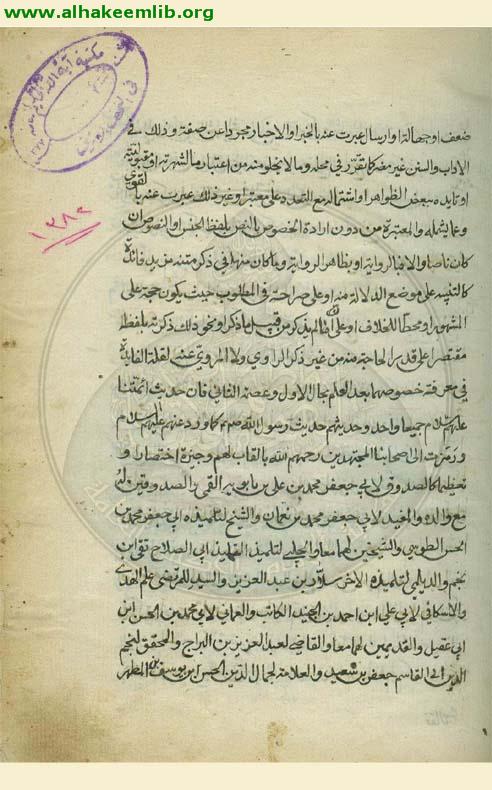 www.alhakeemlib.org
مكتبة آية الله
١٢٨٢
ضعف او جهالة او ارسال عبرت عنه بالخبر او الاخبار مجردا عن صفة وذلك في
الاداب والسنن غير مضر كما تقرر في محله وما لا يخلو منه من اعتبار ما لشهرته او مقبوليته
او تايده ببعض الظواهر او اشتماله مع التعدد على معتبر او غير ذلك عبرت عنه بالقوي
وعما يشمله والمعتبرة من دون ارادة الخصوص بالنص بلفظ الجنس او النصوص ان
كان ناصا والا فبالرواية او بظاهر الرواية وما كان منها في ذكر متنه مزيد فائدة
كالتنبيه على موضع الدلالة منه او على صراحته في المطلوب حيث يكون حجة على
المشهور او محطا للخلاف او على انه ما لم يذكر من قبيل ما ذكر او نحو ذلك ذكرته بلفظه
مقتصرا على قدر الحاجة منه من غير ذكر الراوي ولا المروي عنه لقلة الفايدة
في معرفة خصوصهما بعد العلم بحال الاول وعصمة الثاني فان حديث ائمتنا
عليهم سلام جميعا واحد وحديثهم حديث رسول الله صم كما ورد عنهم عليهم سلام
ورمزت الى اصحابنا المجتهدين رحمهم الله بالقاب لهم وجيزة اختصارا و
تعظيما كالصدوق لابي جعفر محمد بن علي بن بابويه القمي والصدوقين له
مع والده والمفيد لابي جعفر محمد بن نعمان والشيخ لتلميذه ابي جعفر محمد بن
الحسن الطوسي والشيخين لهما معا والحلبي لتلميذ التلميذ ابي الصلاح تقي ابن
نجم والديلمي لتلميذه الاخر سلار بن عبد العزيز والسيد للمرتضى علم الهدى
والاسكافي لابي علي ابن احمد بن الجنيد الكاتب والعماني لابي محمد بن الحسن ابن
ابي عقيل والقديمين لهما معا والقاضي لعبد العزيز بن البراج والمحقق لنجم
الدين ابي القاسم جعفر بن سعيد والعلامة لجمال الدين الحسن بن يوسف بن المطهر